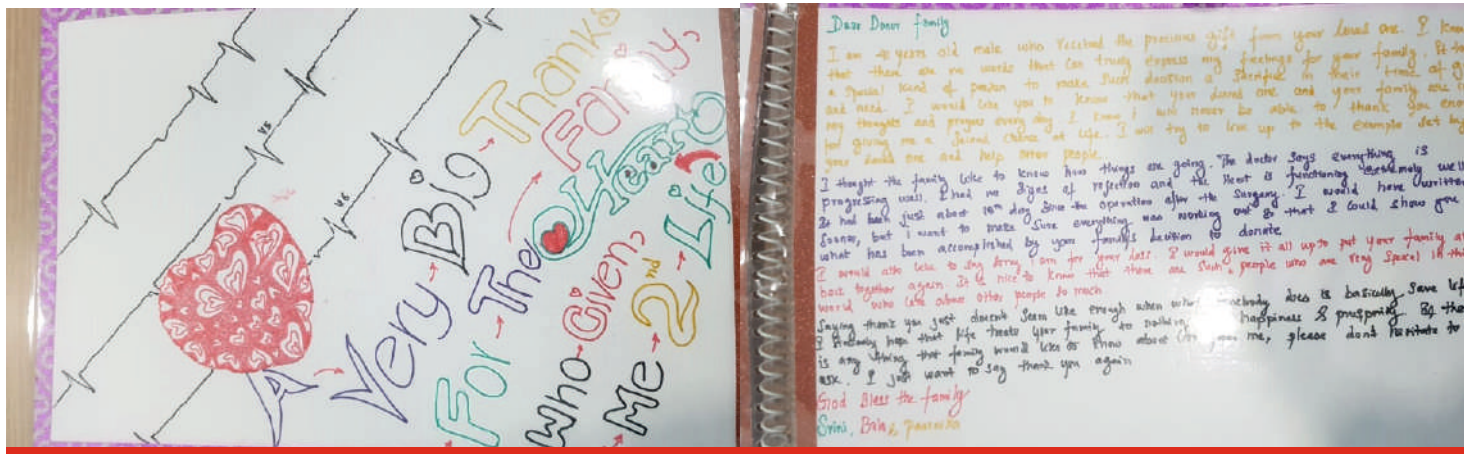 V5
V6
A Very Big Thanks
For The Family,
Who Given,
Me 2nd Life
Dear Donor family
I am years old male who received the precious gift from your loved one. I know
that there are no words that can truly express my feelings for your family. It
a special kind of person to make such decision a sacrifice in their time of
and need. I would like you to know that your loved one and your family are in
my thoughts and prayers every day. I know I will never be able to thank you
for giving me a second chance at life. I will try to live up to the example set by
your loved one and help other people.
I thought the family like to know how things are going. The doctor says everything is
progressing well. I had no signs of rejection and the Heart is functioning extremely well
It had been just about 10th day since the operation after the surgery. I would have written
sooner, but i want to make sure everything was working out so that I could show you
what has been accomplished by your family's decision to donate
I would also like to say sorry I am for your loss. I would give it all up to put your family
back together again. It is nice to know that there are such people who are very special in this
world who care about other people so much
Saying thank you just doesn't seem like enough when what somebody does is basically save life
I sincerely hope that life treats your family to nothing happiness & prosperity. If there
is any thing that family would like to know about me, please dont hesitate to
ask. I just want to say thank you again
God Bless the family
Srini,